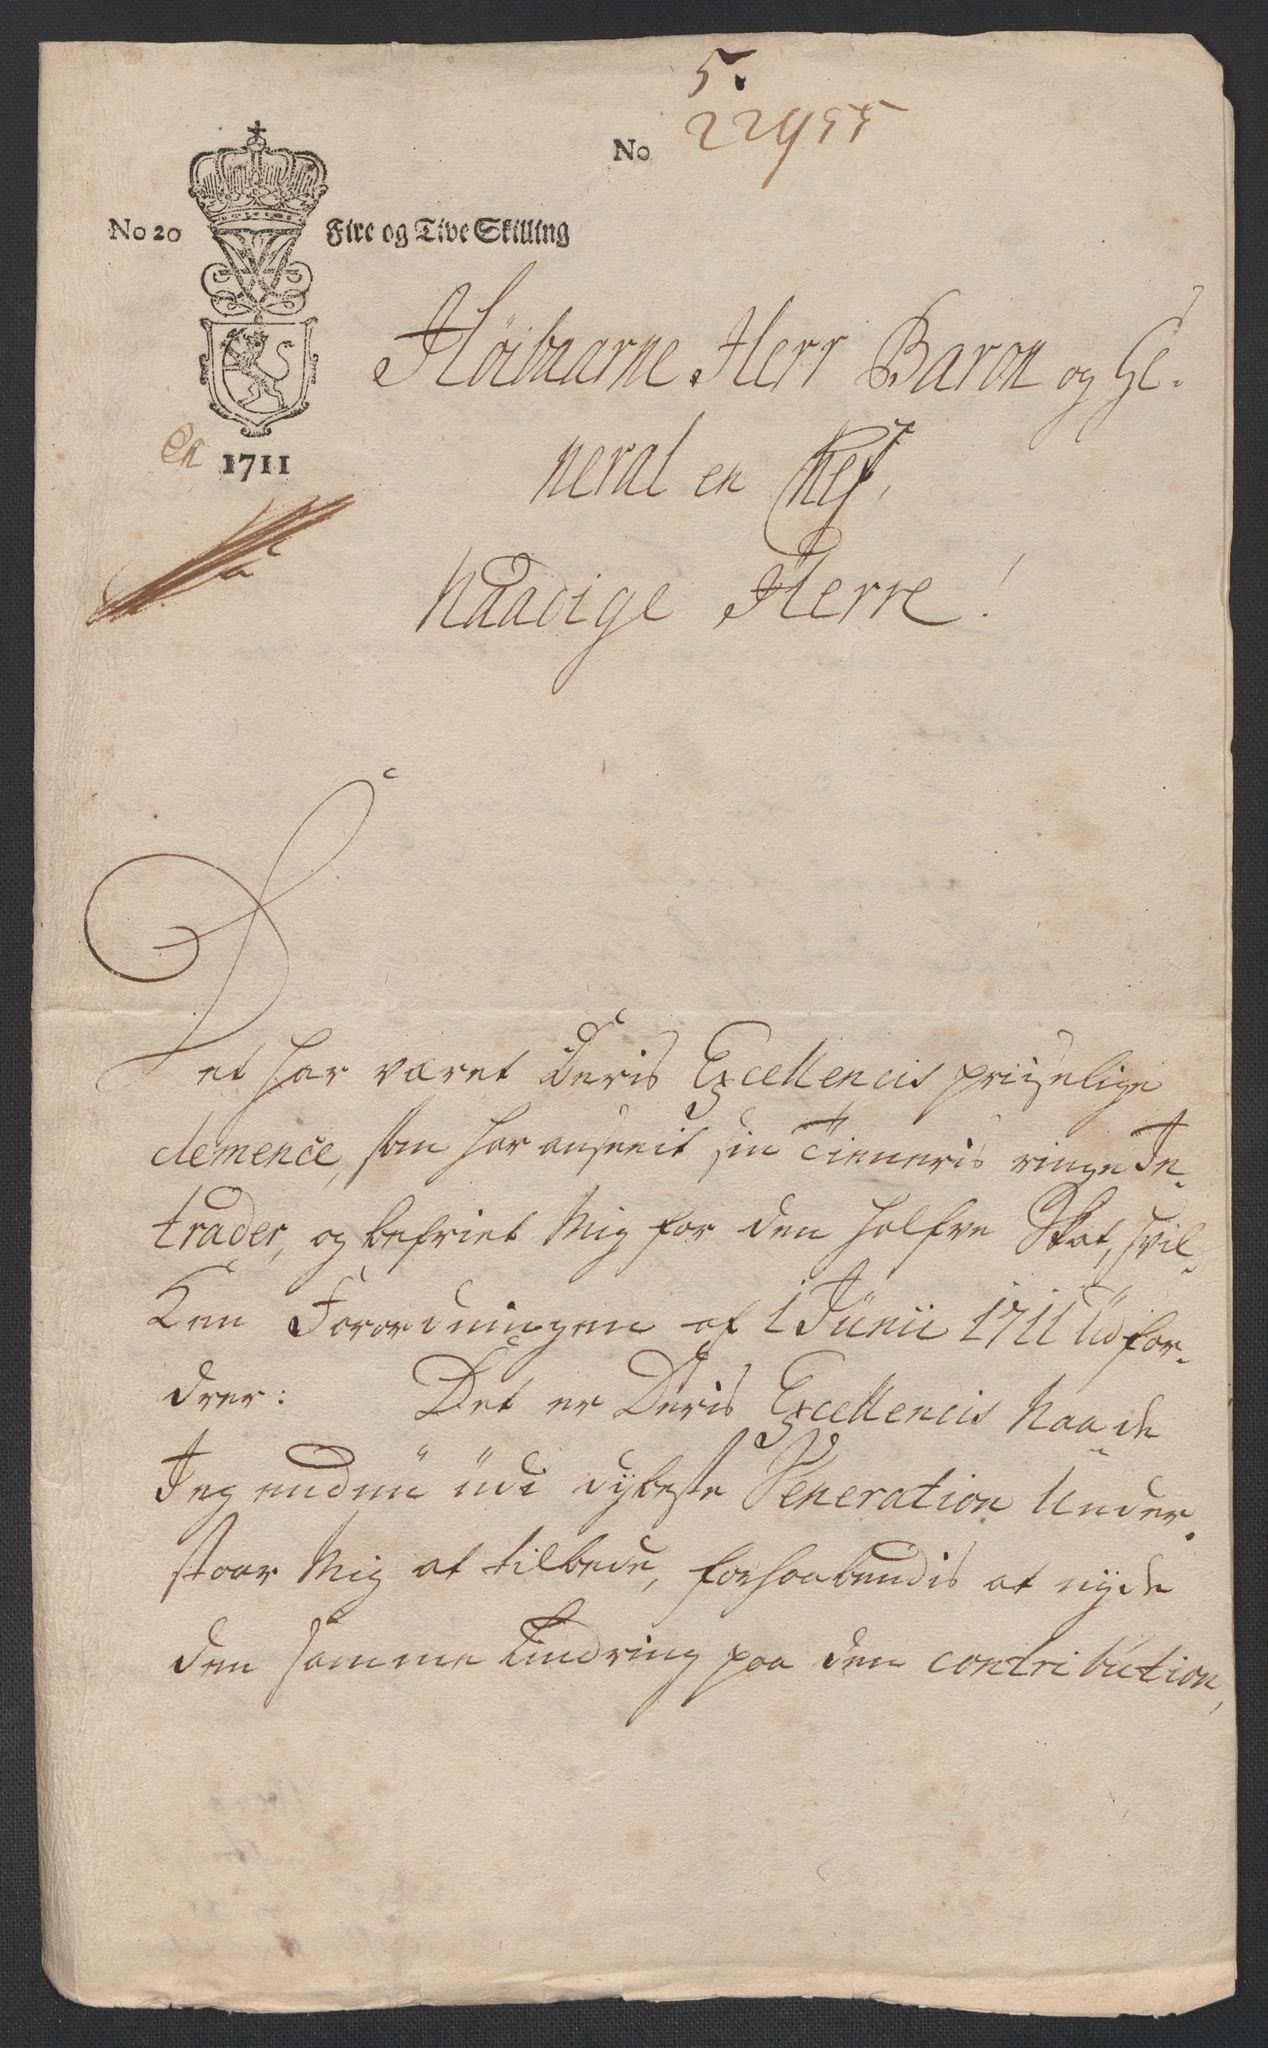 5.
No 22955
No 20 Fire og Tive Skilling
Høibaarne Herr Baron og Ge-
neral en Chef,
En 1711
Naadige Herre!
Det har været Deris Excellencis prisselige
clemence, som har anseeit sin Tieneris ringe In-
trader, og befriet Mig for den halfve Skat, hvil-
ken Forordningen af 1 Junii 1711 Udfor-
drer: Det er Deris Excellencis Naade
Jeg endnu udi dybeste Veneration Under-
staar Mig at tilbede, forhaabendis at nyde
den samme Lindring paa den contribution,